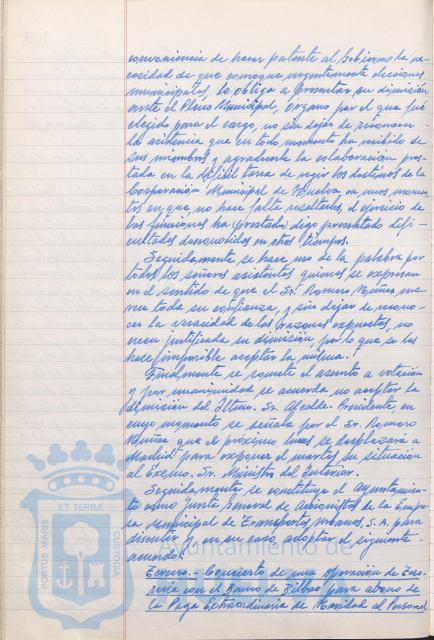 conveniencia de hacer patente al Gobierno la ne-
cesidad de que convoque urgentemente elecciones
municipales, le obliga a presentar su dimisión
ante el Pleno Municipal, órgano por el que fué
elegido para el cargo, no sin dejar de reconocer
la asistencia que en todo momento ha recibido de
sus miembros y agradecerle la colaboración pres-
tada en la difícil tarea de regir los destinos de la
Corporación Municipal de Huelva, en unos momen-
tos en que, no hace falta resaltarlo, el ejercicio de
las funciones ha prestado, digo presentado difi-
cultades desconocidas en otros tiempos.
Seguidamente se hace uso de la palabra por
todos los señores asistentes quienes se expresan
en el sentido de que el Sr. Romero Núñez me-
rece toda su confianza, y sin dejar de recono-
cer la veracidad de las razones expuestas, no
creen justificada su dimisión, por lo que se les
hace imposible aceptar la misma.
Finalmente se somete el asunto a votación
y por unanimidad se acuerda no aceptar la
dimisión del Iltmo. Sr. Alcalde-Presidente, en
cuyo momento se señala por el Sr. Romero
Núñez que el próximo lunes se desplazará a
Madrid para exponer el martes su situación
al Excmo. Sr. Ministro del Interior.
Seguidamente se constituye el Ayuntamien-
to como Junta General de Accionistas de la Empre-
sa Municipal de Transportes Urbanos, S.A. para
discutir y, en su caso, adoptar el siguiente
acuerdo:
Tercero.- Concierto de una Operación de Teso-
rería con el Banco de Bilbao para abono de
la Paga Extraordinaria de Navidad al Personal
PORTUS MARIS ET TERRAE CUSTODIA
Ayuntamiento de